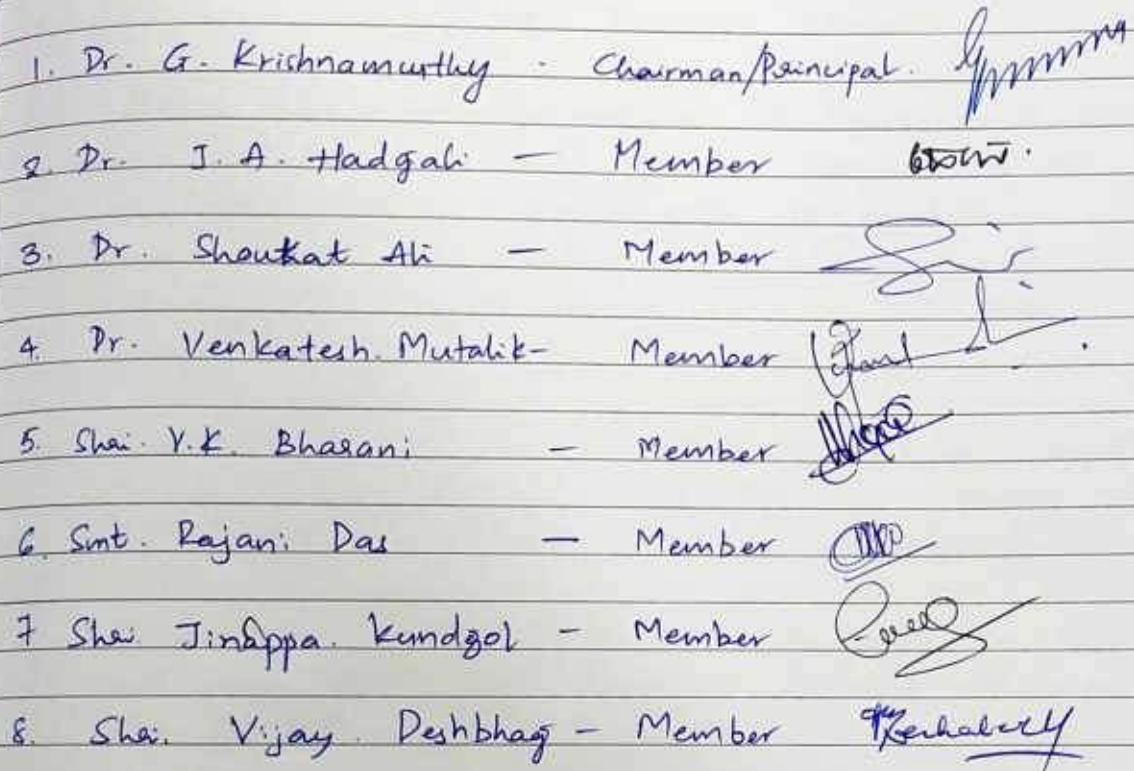 1. Dr. G. Krishnamurthy - Chairman/Principal.
2. Dr. J. A. Hadgali - Member
3. Dr. Shoukat Ali - Member
4. Dr. Venkatesh. Mutalik - Member
5. Shri. V.K. Bharani - Member
6. Smt. Rajani Das - Member
7 Shri Jinappa. Kundgol - Member
8. Shri. Vijay Deshbhag - Member